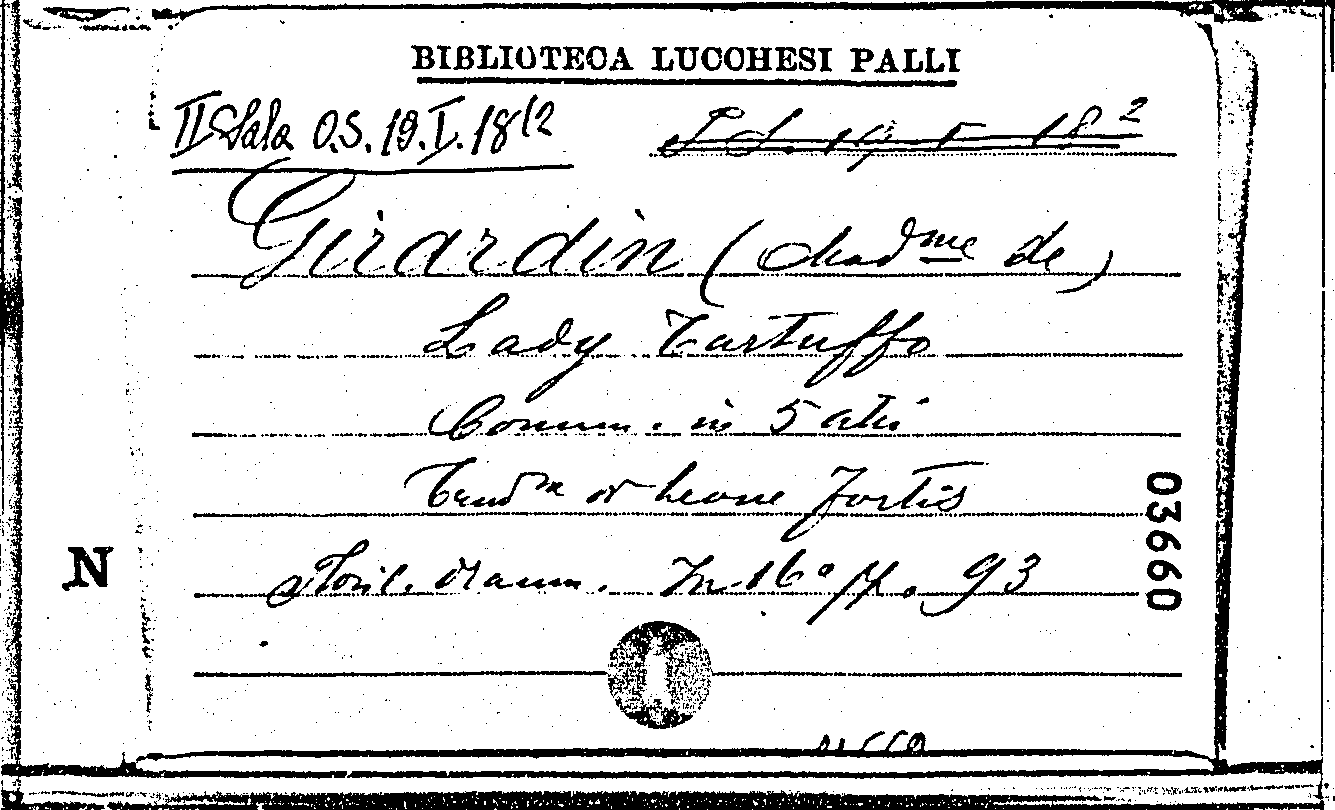 BIBLIOTECA LUCCHESI PALLI
II Sala O.S. 19.I.18(2
Girardin (Madme de)
Lady Tartuffo
Comm. in 5 atti
Traduz di Leone Fortis
Floril. dramm. In 16° pp. 93
N
03660